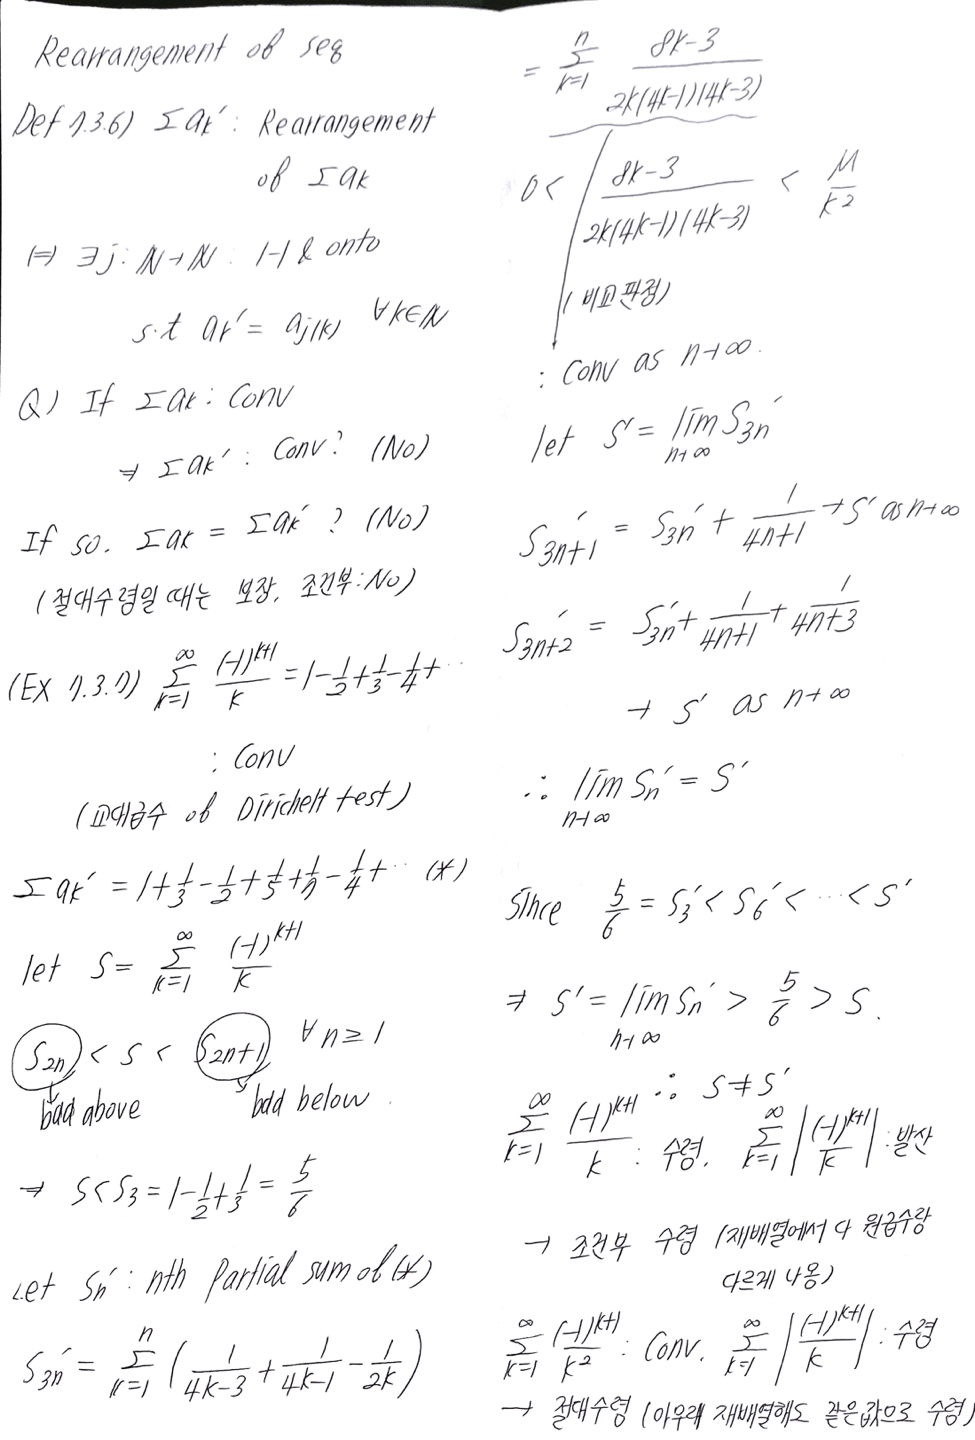 Rearrangement of seq
Def 7.3.6) Σak′ : Rearrangement
of Σak
⇔ ∃j : ℕ→ℕ : 1-1 & onto
s.t ak′ = aj(k) ∀k∈ℕ
Q) If Σak : Conv
⇒ Σak′ : Conv? (No)
If so. Σak = Σak′ ? (No)
(절대수렴일 때는 보장, 조건부:No)
(Ex 7.3.7) Σ_{k=1}^{∞} (-1)^{k+1}/k = 1-1/2+1/3-1/4+···
: Conv
(교대급수 of Dirichelt test)
Σak′ = 1+1/3-1/2+1/5+1/7-1/4+··· (*)
let S = Σ_{k=1}^{∞} (-1)^{k+1}/k
S2n < S < S2n+1 ∀n≥1
bdd above bdd below.
⇒ S<S3 = 1-1/2+1/3 = 5/6
Let Sn′ : nth Partial sum of (*)
S3n′ = Σ_{k=1}^{n} (1/(4k-3) + 1/(4k-1) - 1/(2k))
= Σ_{k=1}^{n} (8k-3)/(2k(4k-1)(4k-3))
0 < (8k-3)/(2k(4k-1)(4k-3)) < M/k²
(비교판정)
: Conv as n→∞.
let S′ = lim_{n→∞} S3n′
S3n+1′ = S3n′ + 1/(4n+1) → S′ as n→∞
S3n+2′ = S3n′ + 1/(4n+1) + 1/(4n+3)
→ S′ as n→∞
∴ lim_{n→∞} Sn′ = S′
Since 5/6 = S3′ < S6′ < ··· < S′
⇒ S′ = lim_{n→∞} Sn′ > 5/6 > S.
∴ S ≠ S′
Σ_{k=1}^{∞} (-1)^{k+1}/k : 수렴. Σ_{k=1}^{∞} |(-1)^{k+1}/k| : 발산
→ 조건부 수렴 (재배열에서 다 원급수랑
다르게 나옴)
Σ_{k=1}^{∞} (-1)^{k+1}/k² : Conv. Σ_{k=1}^{∞} |(-1)^{k+1}/k| : 수렴
→ 절대수렴 (아무래 재배열해도 같은값으로 수렴)